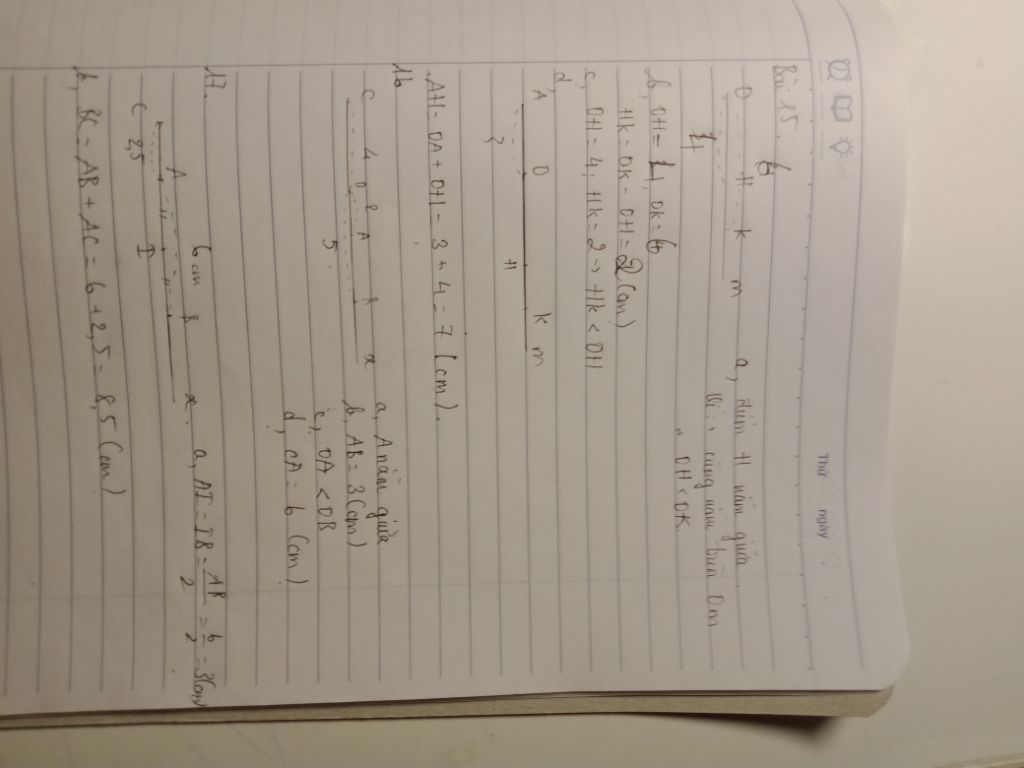 Thứ ngày
Bài 15.
6
O H K m a, điểm H nằm giữa
vì, cùng nằm trên Om
4 OH < OK
b, OH = 4, OK = 6
HK = OK - OH = 2 (cm)
c, OH = 4, HK = 2 → HK < OH
d,
A O H K m
3
AH = OA + OH = 3 + 4 = 7 (cm).
16
C 4 O 2 A B x a, A nằm giữa
5 b, AB = 3 (cm)
c, OA < OB
d, CA = 6 (cm)
17. 6 cm
A B x. a, AI = IB = AB/2 = 6/2 = 3 (cm)
C 2,5 I
b, BC = AB + AC = 6 + 2,5 = 8,5 (cm)